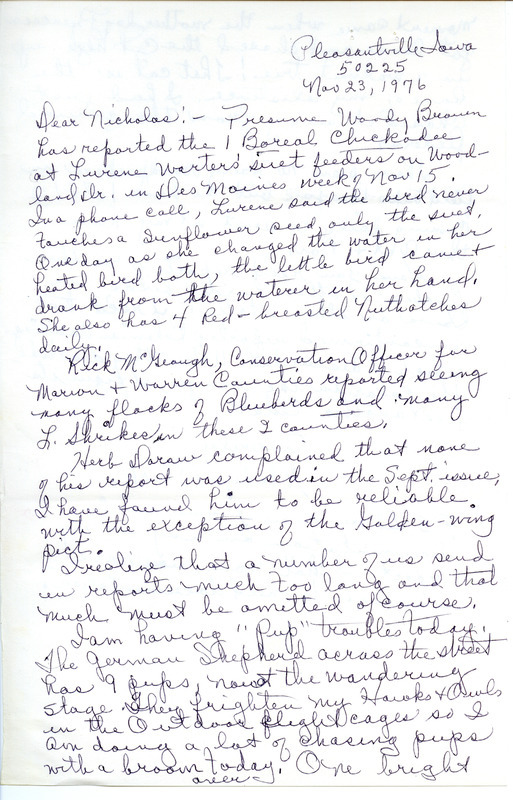 Pleasantville, Iowa
50225
Nov 23, 1976
Dear Nicholas:- Presume Woody Brown
has reported the 1 Boreal Chickadee
at Lurene Warters' suet feeders on Wood-
land Dr. in Des Moines week of Nov 15.
In a phone call, Lurene said the bird never
touches a sunflower seed, only the suet.
One day as she changed the water in her
heated bird bath, the little bird came &
drank from the waterer in her hand.
She also has 4 Red-breasted Nuthatches
daily.
Rick McGeough, Conservation Officer for
Marion & Warren Counties reported seeing
many flocks of Bluebirds and many
L. Shrikes in these 2 counties.
Herb Dorow complained that none
of his report was used in the Sept. issue,
I have found him to be reliable
with the exception of the Golden-wing
pict.
I realize that a number of us send
in reports much too long and that
much must be omitted of course.
I am having "Pup" troubles today.
The German Shepherd across the street
has 9 pups, now at the wandering
stage. They frighten my Hawks & Owls
in the Outdoor flight cages so I
am doing a lot of chasing pups
with a broom today. One bright
over